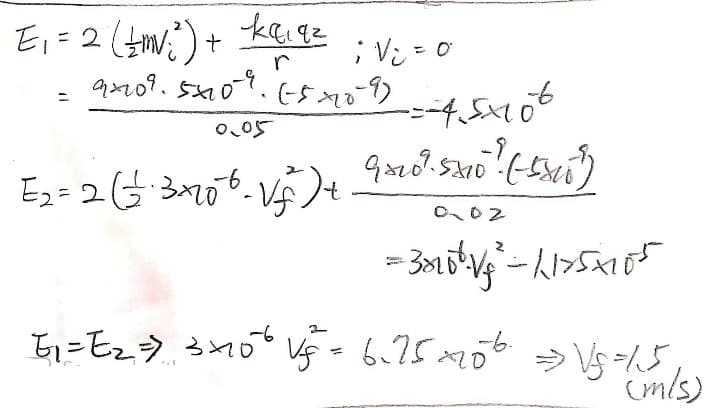 E₁ = 2 (½mVᵢ²) + kq₁q₂/r ; Vᵢ = 0
= 9×10⁹. 5×10⁻⁹. (-5×10⁻⁹)/0.05 = -4.5×10⁻⁶
E₂ = 2 (½·3×10⁻⁶·V_f²) + 9×10⁹.5×10⁻⁹.(-5×10⁻⁹)/0.02
= 3×10⁻⁶.V_f² - 1.125×10⁻⁵
E₁ = E₂ ⇒ 3×10⁻⁶ V_f² = 6.75×10⁻⁶ ⇒ V_f = 1.5 (m/s)